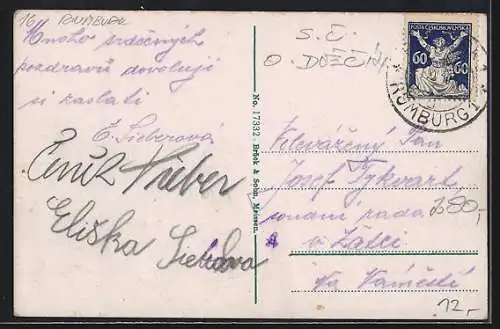 16 RUMBURK
Mnoho srdečných
pozdravů dovolují
si zaslati
E. Sieberová
Čeněk Sieber
Eliška Sieberova
No. 17332 Brück & Sohn, Meissen.
S. Č.
O. DĚČÍN
POŠTA ČESKOSLOVENSKÁ
60 60
RUMBURG 1
Velevážený Pan
Josef Tykvart
rada
280,-
v Žatci
Na Náměstí
12,-